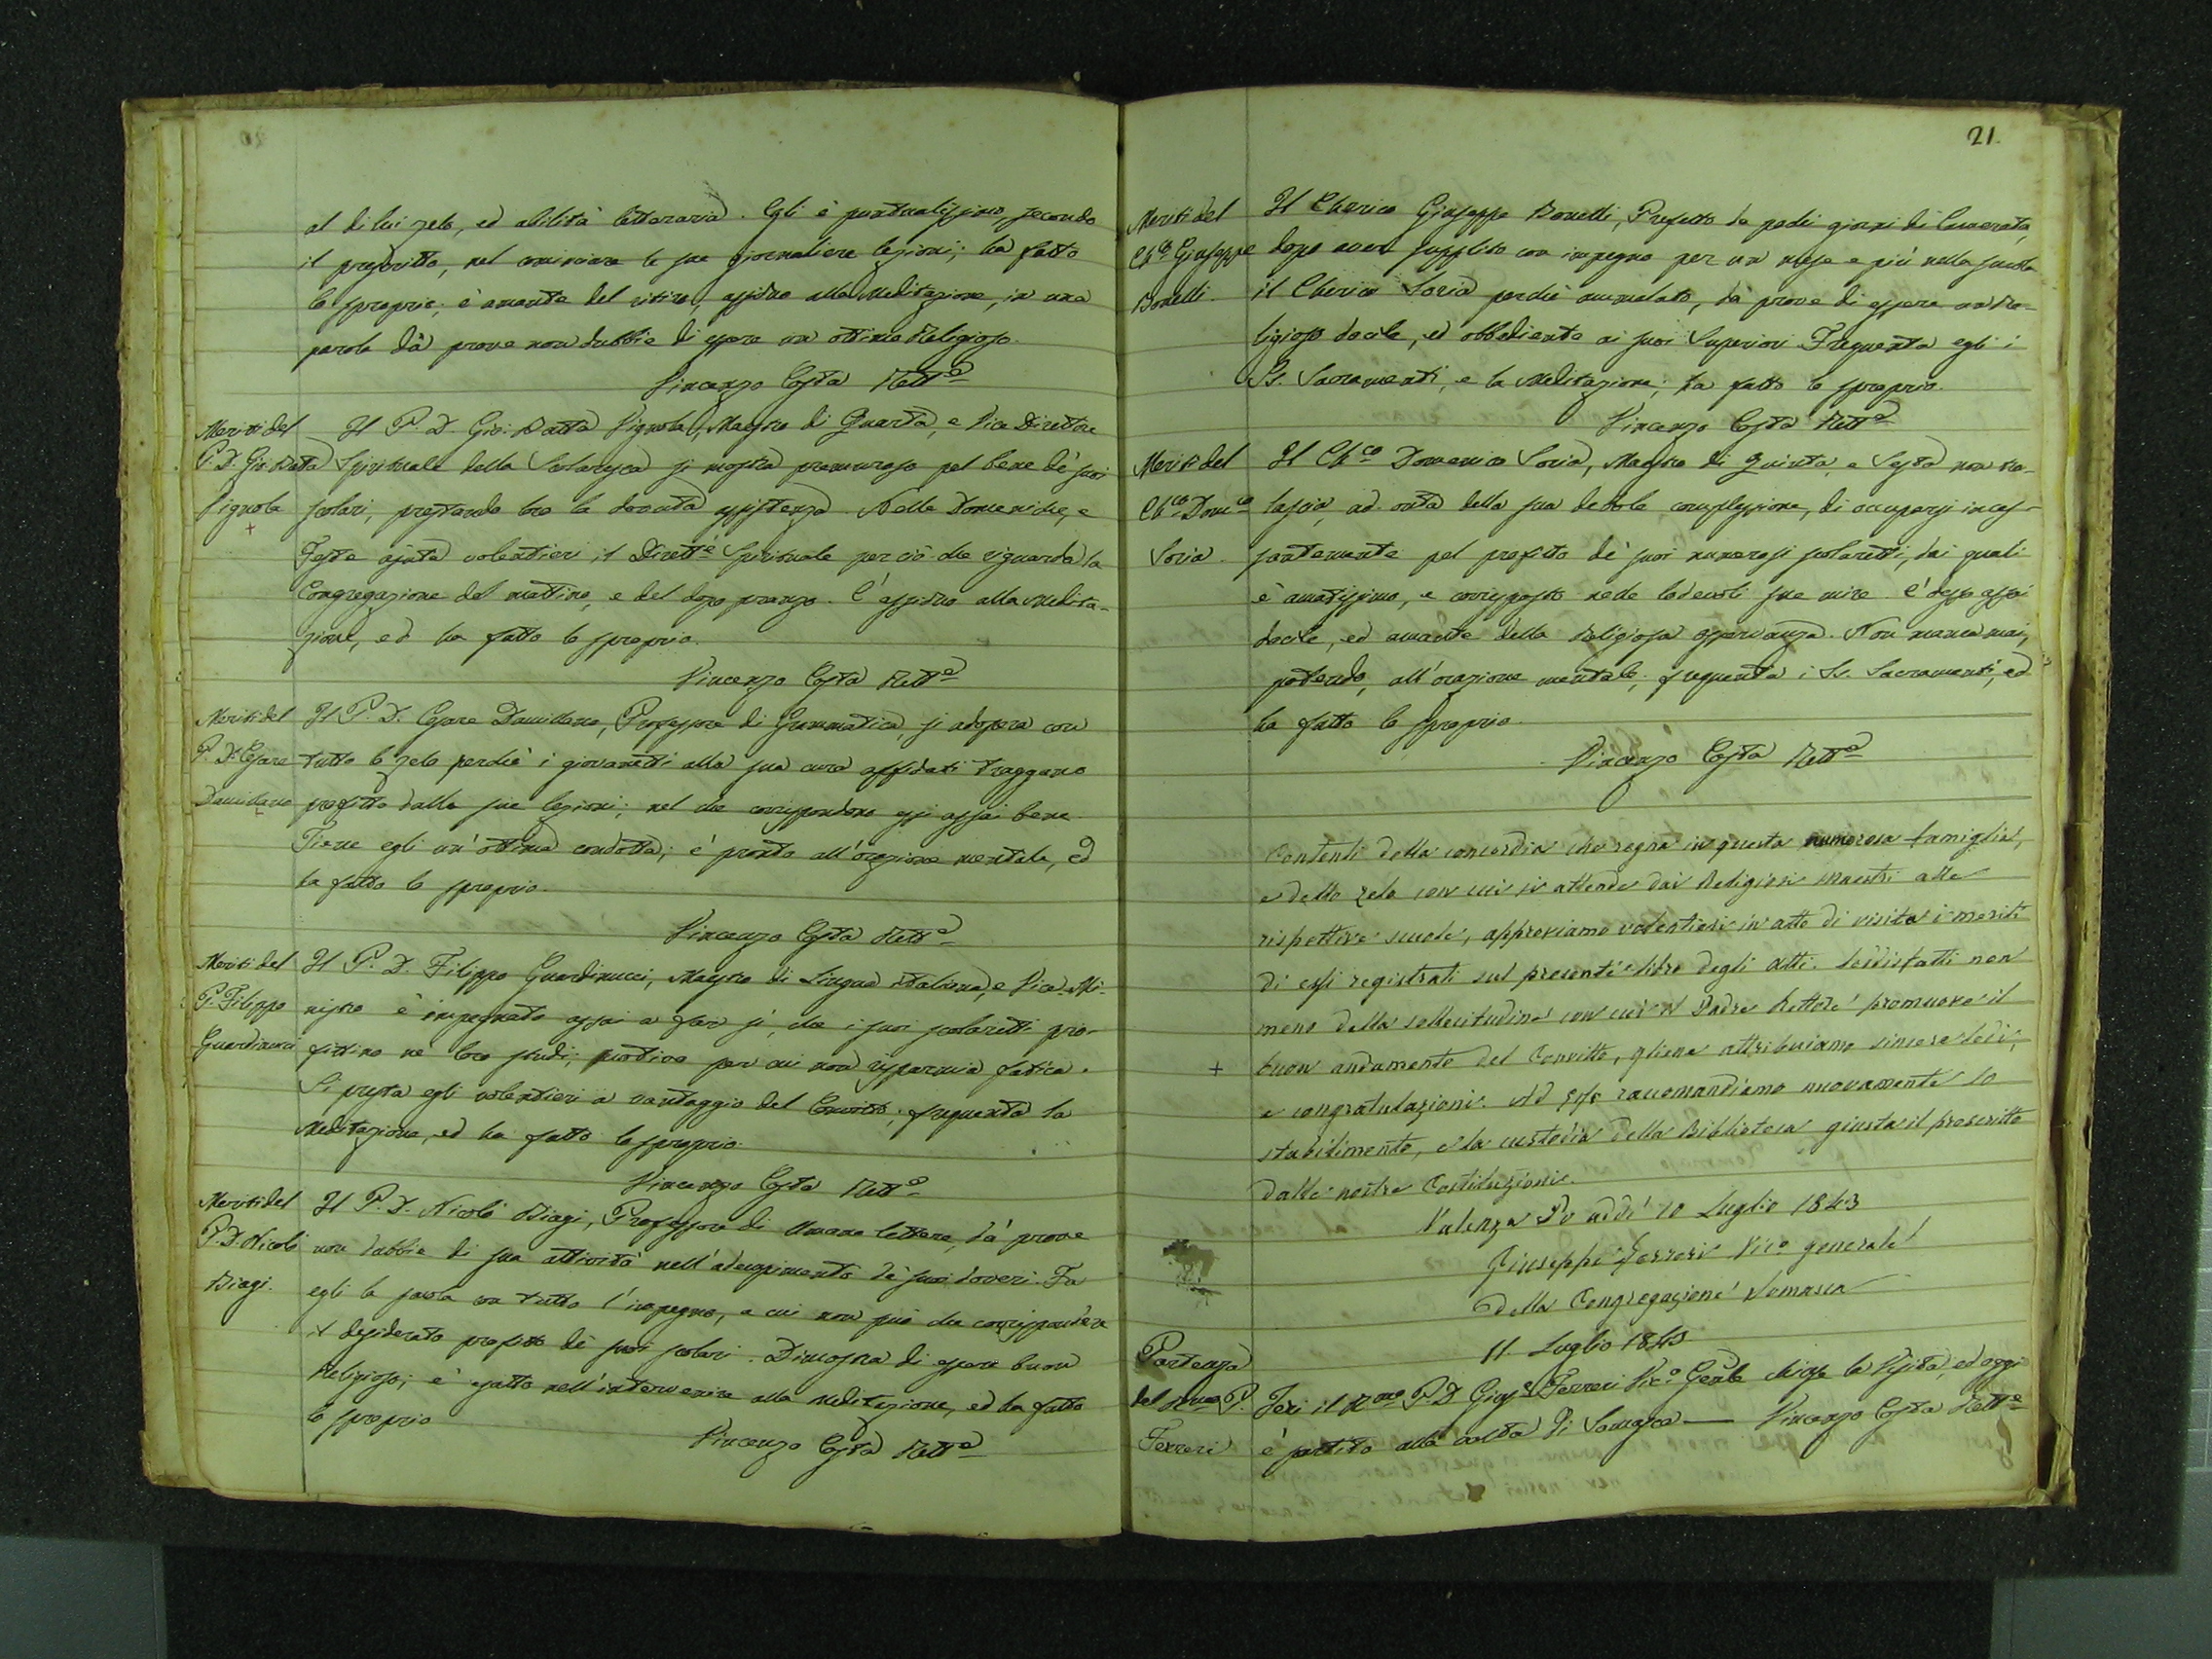 al di lui zelo, ed abilità letteraria. Egli è puntualissimo, secondo
il prescritto, nel cominciare le sue giornaliere lezioni; ha fatto
lo sproprio; è amante del ritiro, assiduo alla Meditazione, in una
parola dà prove non dubbie di essere un ottimo Religioso.
Vincenzo Costa Rett.e
Meriti del
P. D. Gio: Batta
Vignola
+
Il P. D. Gio: Batta Vignola, Maestro di Quarta, e Vice Direttore
Spirituale della Scolaresca si mostra premuroso pel bene de' suoi
scolari, prestando loro la dovuta assistenza. Nelle Domeniche, e
Feste ajuta volentieri il Dirett.e Spirituale per ciò che riguarda la
Congregazione del mattino, e del dopo pranzo. È assiduo alla Medita-
zione, ed ha fatto lo sproprio.
Vincenzo Costa Rett.e
Meriti del
P. D. Cesare
Damillano
+
Il P. D. Cesare Damillano, Professore di Grammatica, si adopera con
tutto lo zelo perchè i giovanetti alla sua cura affidati traggano
profitto dalle sue lezioni; nel che corrispondono essi assai bene.
Tiene egli un'ottima condotta; è pronto all'orazione mentale, ed
ha fatto lo sproprio.
Vincenzo Costa Rett.e
Meriti del
P. Filippo
Guardinucci
Il P. D. Filippo Guardinucci, Maestro di Lingua Italiana, e Vice-Mi-
nistro è impegnato assai a far sì, che i suoi scolaretti pro-
fittino ne' loro studi; motivo per cui non risparmia fatica.
Si presta egli volentieri a vantaggio del Convitto; frequenta la
Meditazione, ed ha fatto lo sproprio.
Vincenzo Costa Rett.e
Meriti del
P. D. Nicolò
Biagi.
Il P. D. Nicolò Biagi, Professore di Umane lettere, dà prove
non dubbie di sua attività nell'adempimento de' suoi doveri. Fa
egli la scuola con tutto l'impegno, a cui non può che corrispondere
il desiderato profitto de' suoi scolari. Dimostra di essere buon
Religioso; è esatto nell'intervenire alla Meditazione, ed ha fatto
lo sproprio
Vincenzo Costa Rett.e
21.
Meriti del
Ch.co Giuseppe
Bonelli.
Il Cherico Giuseppe Bonelli, Prefetto da pochi giorni di Camerata,
dopo aver supplito con impegno per un mese e più nella scuola
il Cherico Soria perchè ammalato, dà prove di essere un Re-
ligioso docile, ed obbediente ai suoi Superiori. Frequenta egli i
Ss. Sacramenti, e la Meditazione; ha fatto lo sproprio.
Vincenzo Costa Rett.e
Meriti del
Ch.co Dom.co
Soria.
Il Ch.co Domenico Soria, Maestro di Quinta, e Sesta non tra-
lascia, ad onta della sua debole complessione, di occuparsi inces-
santemente pel profitto de' suoi numerosi scolaretti, dai quali
è amatissimo, e corrisposto nelle lodevoli sue mire. È desso assai
docile, ed amante della Religiosa osservanza. Non manca mai,
potendo, all'orazione mentale; frequenta i Ss. Sacramenti, ed
ha fatto lo sproprio.
Vincenzo Costa Rett.e
Contenti della concordia che regna in questa numerosa famiglia,
e dello zelo con cui si attende dai Religiosi maestri alle
rispettive scuole, approviamo volentieri in atto di visita i meriti
di essi registrati sul presente libro degli Atti. Soddisfatti non
meno della sollecitudine con cui il Padre Rettore promuove il
+
buon andamento del Convitto, gliene attribuiamo sincere lodi,
e congratulazioni. Ad esso raccomandiamo nuovamente lo
stabilimento, e la custodia della Biblioteca giusta il prescritto
dalle nostre Costituzioni.
Valenza Po addì 10 Luglio 1843
Giuseppe Ferreri Vic.o generale
della Congregazione Somasca
11. Luglio 1843
Partenza
del R.mo P.
Ferreri
Jeri il R.mo P. D. Gius.e Ferreri Vic.o Gen.le chiuse la Visita, ed oggi
è partito alla volta di Somasca — Vincenzo Costa Rett.e